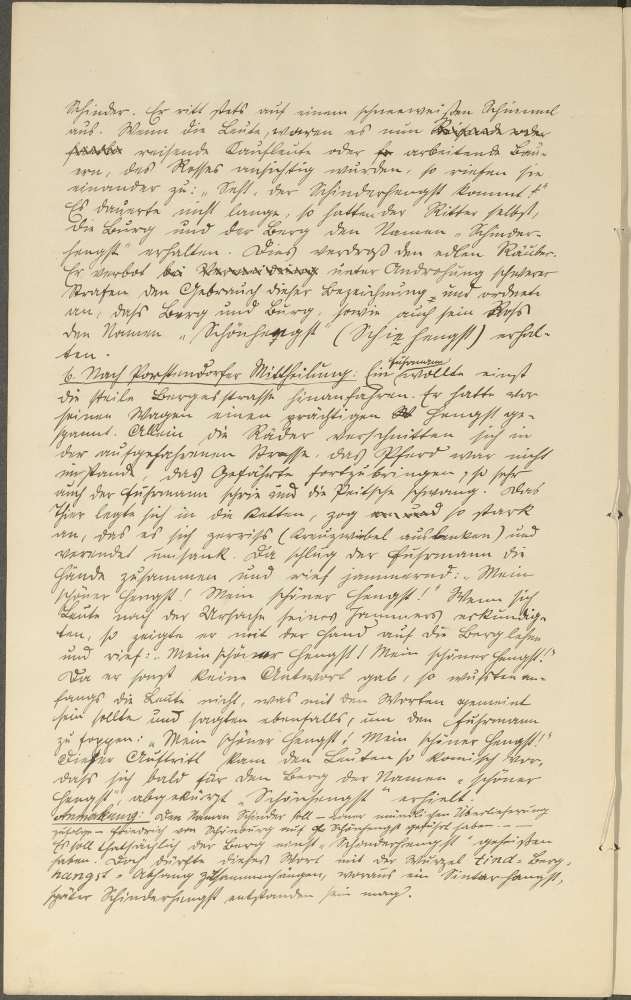 Schinder. Er ritt stets auf einem schneeweißen Schimmel
aus. Wenn die Leute, waren es nun Reisende oder
reisende Kaufleute oder arbeitende Bau-
ern, des Rosses ansichtig wurden, so riefen sie
einander zu: „Seht, der Schinderhengst kommt!"
Es dauerte nicht lange, so hatten der Ritter selbst,
die Burg und der Berg den Namen „Schinder-
hengst" erhalten. Dies verdroß den edlen Räuber.
Er verbot bei Vermeidung unter Androhung schwerer
Strafen den Gebrauch dieser Bezeichnung und ordnete
an, dass Berg und Burg, sowie auch sein Ross
den Namen „Schönhengst" (Schin hengst) erhal-
ten.
6. Nach Porstendorfer Mittheilung: Ein Fuhrmann wollte einst
die steile Bergesstrasse hinanfahren. Er hatte vor
seinen Wagen einen prächtigen Hengst ge-
spannt. Allein die Räder verschnitten sich in
der aufgefahrenen Strasse. das Pferd war nicht
imstande, das Gefährte fortzubringen, so sehr
auch der Fuhrmann schrie und die Peitsche schwang. Das
Thier legte sich in die Ketten, zog so stark
an, das es sich zerriss (Kreuzwirbel ausrenken) und
verendet umsank. Da schlug der Fuhrmann die
Hände zusammen und rief jammernd: „Mein
schöner Hengst! Mein schöner Hengst!" Wenn sich
Leute nach der Ursache seines Jammers erkundig-
ten, so zeigte er mit der Hand auf die Berglehne
und rief: „Mein schöner Hengst! Mein schöner Hengst!"
Da er sonst keine Antwort gab, so wußten an-
fangs die Leute nicht, was mit den Worten gemeint
sein sollte und sagten ebenfalls, um den Fuhrmann
zu foppen: „Mein schöner Hengst! Mein schöner Hengst!"
Dieser Auftritt kam den Leuten so komisch vor,
dass sich bald für den Berg der Namen „schöner
Hengst", abgekürzt „Schönhengst" erhielt.
Anmerkung: Den Namen Schinder soll – einer mündlichen Überlieferung
zufolge – Friedrich von Schönburg auf Schönhengst geführt haben. –
Es soll thatsächlich der Burg einst „Schönderhengst" geheißen
haben. Doch dürfte dieses Wort mit der Wurzel Sind = Berg,
hangst = Abhang zusammenhängen, woraus ein Sintarhangst,
später Schinderhengst entstanden sein mag.